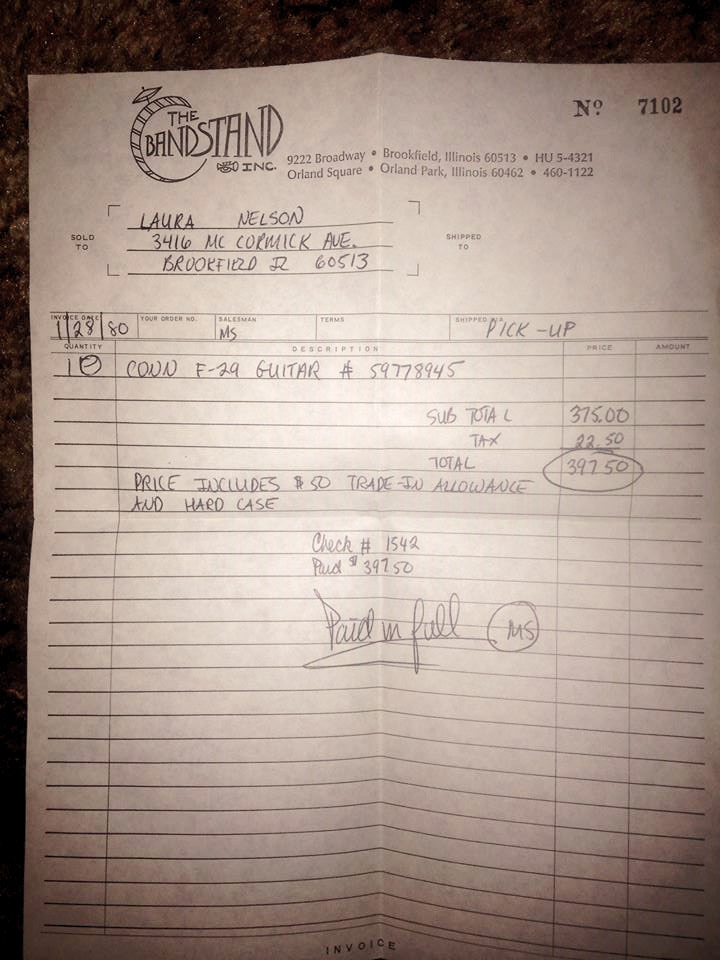 THE
BANDSTAND
INC.
Nº 7102
9222 Broadway • Brookfield, Illinois 60513 • HU 5-4321
Orland Square • Orland Park, Illinois 60462 • 460-1122
SOLD TO
LAURA NELSON
3416 MC CORMICK AVE.
BROOKFIELD IL 60513
SHIPPED TO
INVOICE DATE YOUR ORDER NO. SALESMAN TERMS SHIPPED VIA
1/28/80 MS PICK-UP
QUANTITY DESCRIPTION PRICE AMOUNT
1 CONN F-29 GUITAR # 59778945
SUB TOTAL 375.00
TAX 22.50
TOTAL 397.50
PRICE INCLUDES $50 TRADE-IN ALLOWANCE
AND HARD CASE
Check # 1542
Paid $397.50
Paid in full MS
INVOICE